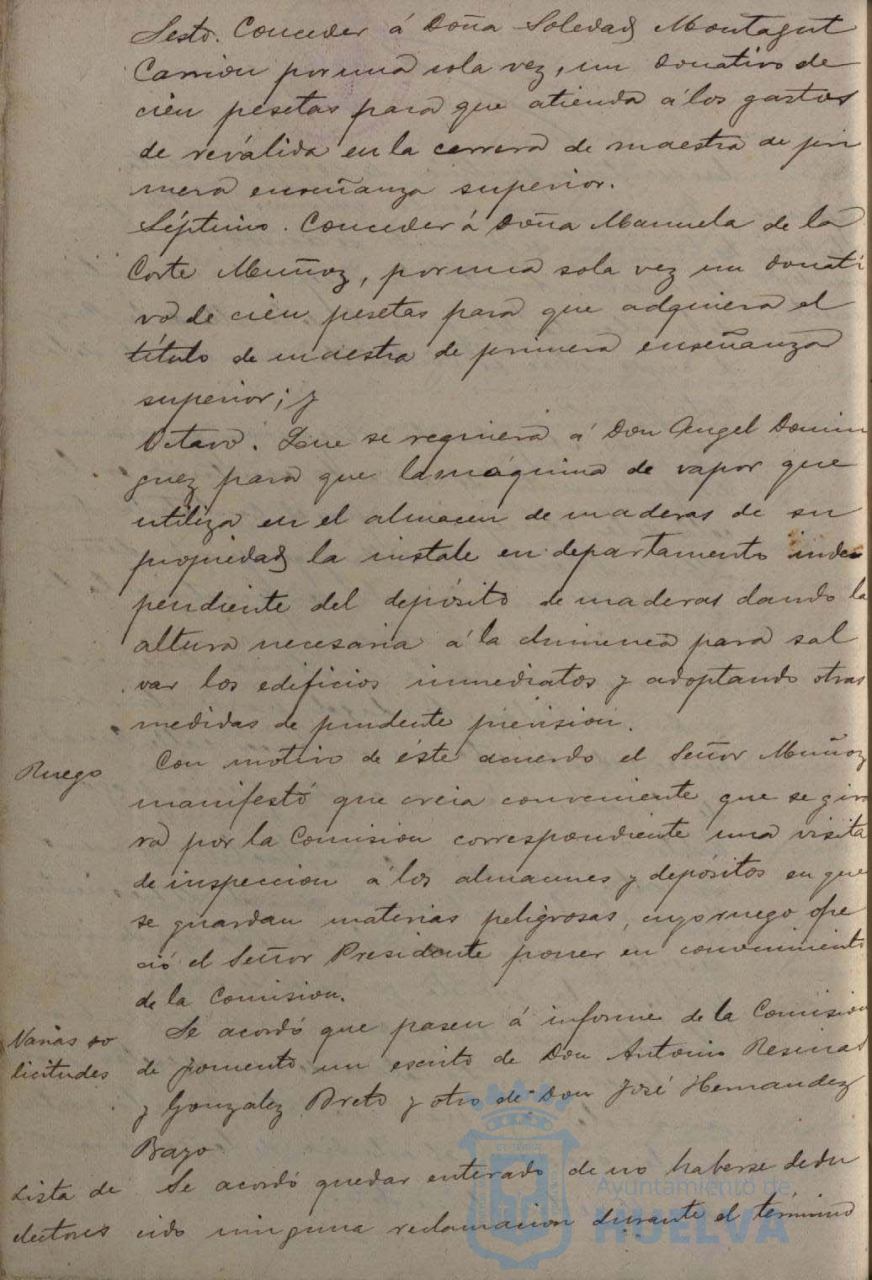 Sesto. Conceder á Doña Soledad Montagut
Carrion por una sola vez, un donativo de
cien pesetas para que atienda á los gastos
de reválida en la carrera de maestra de pri
mera enseñanza superior.
Séptimo. Conceder á Doña Manuela de la
Corte Muñoz, por una sola vez un donati
vo de cien pesetas para que adquiera el
título de maestra de primera enseñanza
superior; y
Octavo. Que se requiera á Don Angel Domin
guez para que la máquina de vapor que
utiliza en el almacen de maderas de su
propiedad la instale en departamento inde
pendiente del depósito de maderas dando la
altura necesaria á la chimenea para sal
var los edificios inmediatos y adoptando otras
medidas de prudente prevision.
Ruego Con motivo de éste acuerdo el Señor Muñoz
manifestó que creia conveniente que se gira
ra por la Comision correspondiente una visita
de inspeccion á los almacenes y depósitos en que
se guardan materias peligrosas, cuyo ruego ofre
ció el Señor Presidente poner en conocimiento
de la Comision.
Varias so Se acordó que pasen á informe de la Comision
licitudes de fomento un escrito de Don Antonio
y Gonzalez Prieto y otro de Don José Hernandez
Bayo
Lista de Se acordó quedar enterado de no haberse dedu
electores cido ninguna reclamacion durante el término
Ayuntamiento de
HUELVA